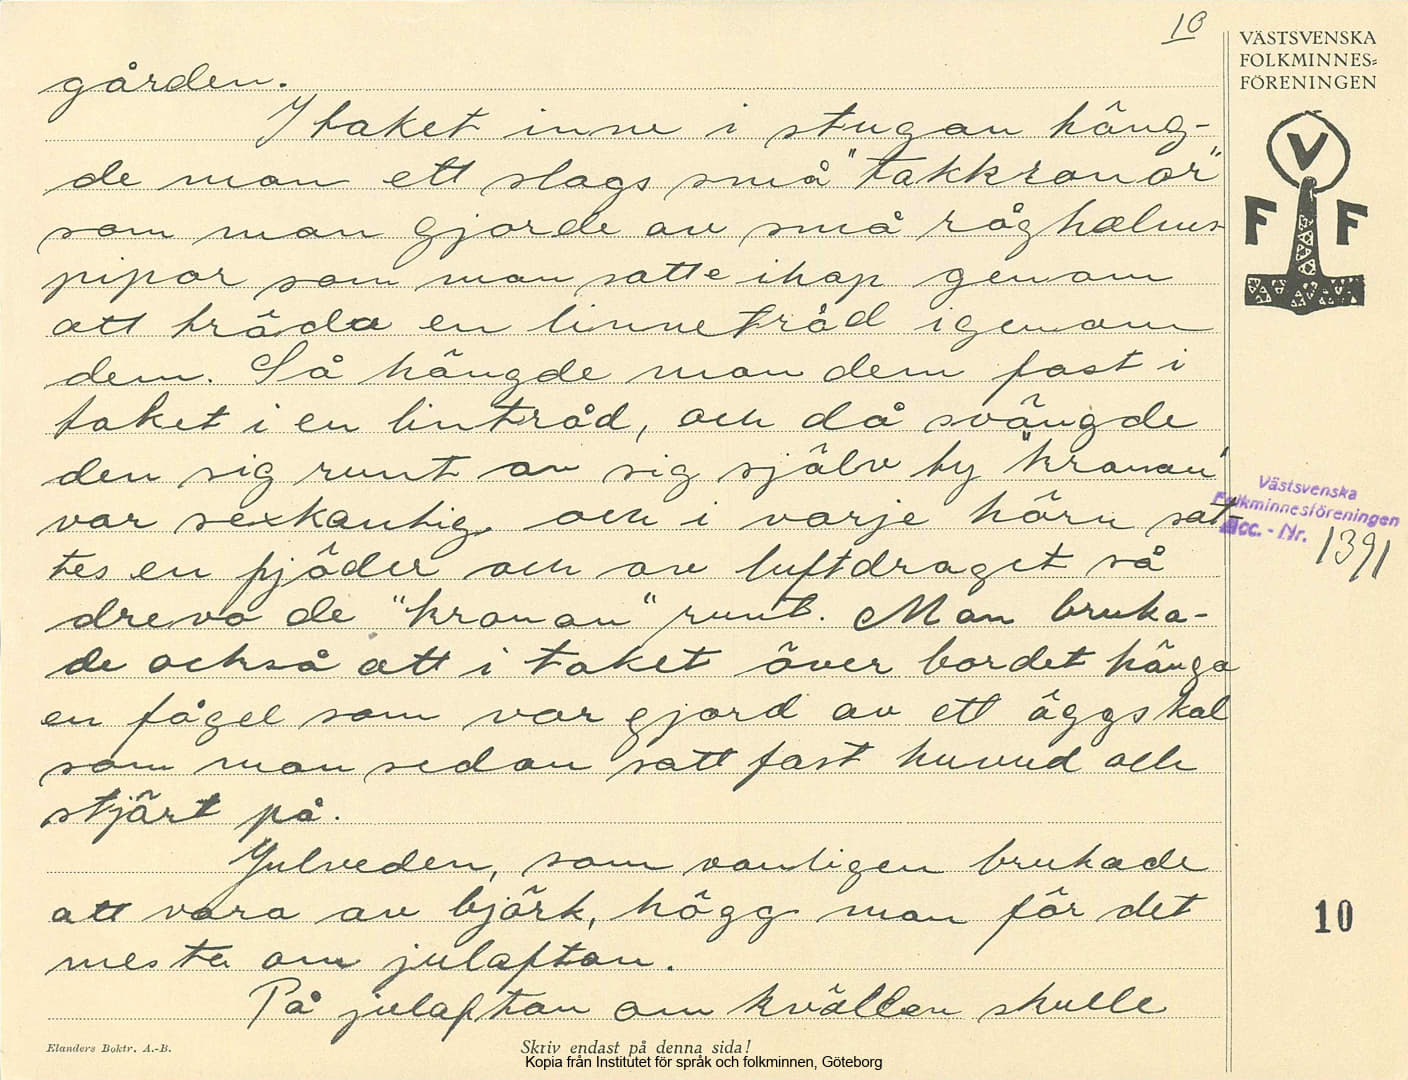 10
VÄSTSVENSKA
FOLKMINNES=
FÖRENINGEN
V
F F
gården.
I taket inne i stugan häng-
de man ett slags små "takkronor"
som man gjorde av små råghalms-
pipor som man satte ihop genom
att träda en linnetråd igenom
dem. Så hängde man dem fast i
taket i en lintråd, och då svängde
den sig runt av sig själv ty "kronan"
var sexkantig och i varje hörn sat-
tes en fjäder och av luftdraget så
drevo de "kronan" runt. Man bruka-
de också att i taket över bordet hänga
en fågel som var gjord av ett äggskal
som man sedan satt fast huvud och
stjärt på.
Julveden, som vanligen brukade
att vara av björk, högg man för det
mesta om julafton.
På julafton om kvällen skulle
Västsvenska
Folkminnesföreningen
Acc. - Nr. 1391
10
Elanders Boktr. A.-B.
Skriv endast på denna sida!
Kopia från Institutet för språk och folkminnen, Göteborg